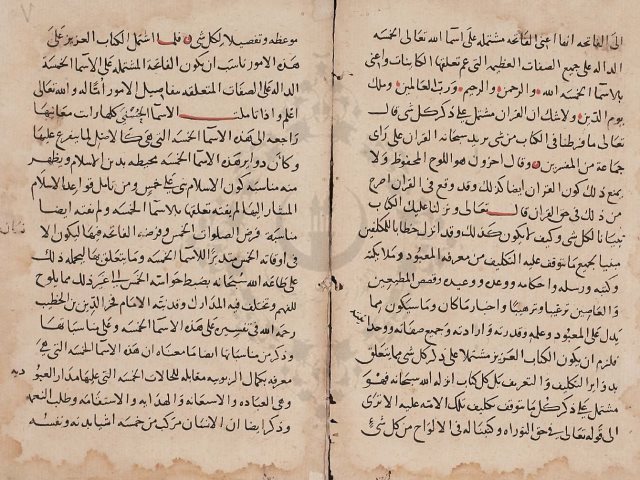 الى الفاتحه انها اعنى الفاتحه مشتمله على اسما الله تعالى الخمسة
الداله على جميع الصفات العظيمه التى عم تعلقها الكاينات واعنى
بالاسما الخمسه الله والرحمن والرحيم ورب العالمين وملك
يوم الدين ولا شك ان القران مشتمل على ذكر كل شى قال
تعالى ما فرطنا فى الكتاب من شى يريد سبحانه القران على راى
جماعة من المفسرين وقال اخرون هو اللوح المحفوظ ولا
يمنع ذلك كون القران ايضا كذلك وقد وقع فى القران اصرح
من ذلك فى حق القران قال تعالى ونزلنا عليك الكتاب
تبيانا لكل شى وكيف لا يكون كذلك وقد انزل خطابا للمكلفين
مبنيا جميع ما يتوقف عليه التكليف من معرفه المعبود وملايكته
وكتبه ورسله واحكامه ووعده ووعيده وقصص المطيعين
والعاصين ترغيبا وترهيبا واخبار ما كان وما سيكون مما
يدل على المعبود وعلمه وقدرته وارادته وجميع صفاته ووحدا
فلزم ان يكون الكتاب العزيز مشتملا على ذكر كل شى مما يتعلق
بدائرة التكليف والتعريف بل كل كتاب انزله الله سبحانه فهو
مشتمل على ذكر كل ما يتوقف تكليف تلك الامه عليه الا ترى
الى قوله تعالى فى حق التوراه وكتبنا له فى الالواح من كل شى
موعظه وتفصيلا لكل شى فلما اشتمل الكتاب العزيز على
هذه الامور ناسب ان يكون الفاتحة المشتمله على الاسما الخمسة
الداله على الصفات المتعلقه مفاصيل الامور امّا له والله تعالى
اعلم واذا تاملت الاسما الحسنى كلها رات معانيها
راجعه الى هذه الاسما الخمسه التى هى كالاصل لما يتفرع عليها
وكأن دوائر هذه الاسما الخمسه محيطه بدين الاسلام ويظهر
منه مناسبه كون الاسلام بنى على خمس ومن تامل قواعد الاسلام
المشار اليها لم يفته تعلقها بالاسما الخمسه ولم يفته ايضا
مناسبة فرض الصلوات الخمس وفرضه الفاتحه فيها ليكون الا
فى اوقاته الخمس متدبرا للاسما الخمسه وما يتعلق بها ليحمله ذلك
على طاعة الله سبحانه بضبط حواسه الخمس الى غير ذلك مما يلوح
للفهم وتختلف فيه المدارك وقد نبّه الامام فخر الدين بن الخطيب
رحمه الله فى تفسيره على هذه الاسما الخمسه وعلى مناسباتها
وذكر من مناسباتها ايضا ما معناه ان هذه الاسما الخمسه التى هى
معرفه بكمال الربوبيه مقابله للحالات الخمسه التى عليها مدار العبو
وهى العباده والاستعانه والهدايه والاستقامه وطلب النعمه
وذكر ايضا ان الانسان مركب من خمسه اشيا بدنه ونفسه
ديه